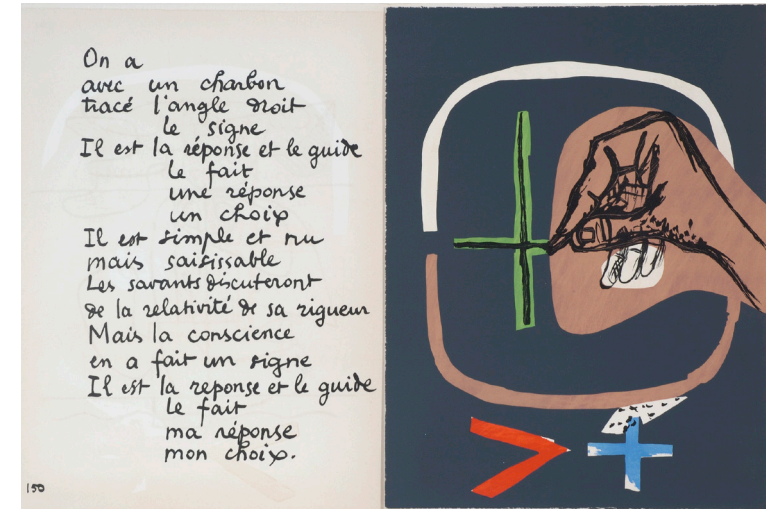 On a
avec un charbon
tracé l'angle droit
le signe
Il est la réponse et le guide
le fait
une réponse
un choix
Il est simple et nu
mais saisissable
Les savants discuteront
de la relativité de sa rigueur
Mais la conscience
en a fait un signe
Il est la reponse et le guide
le fait
ma réponse
mon choix.
150